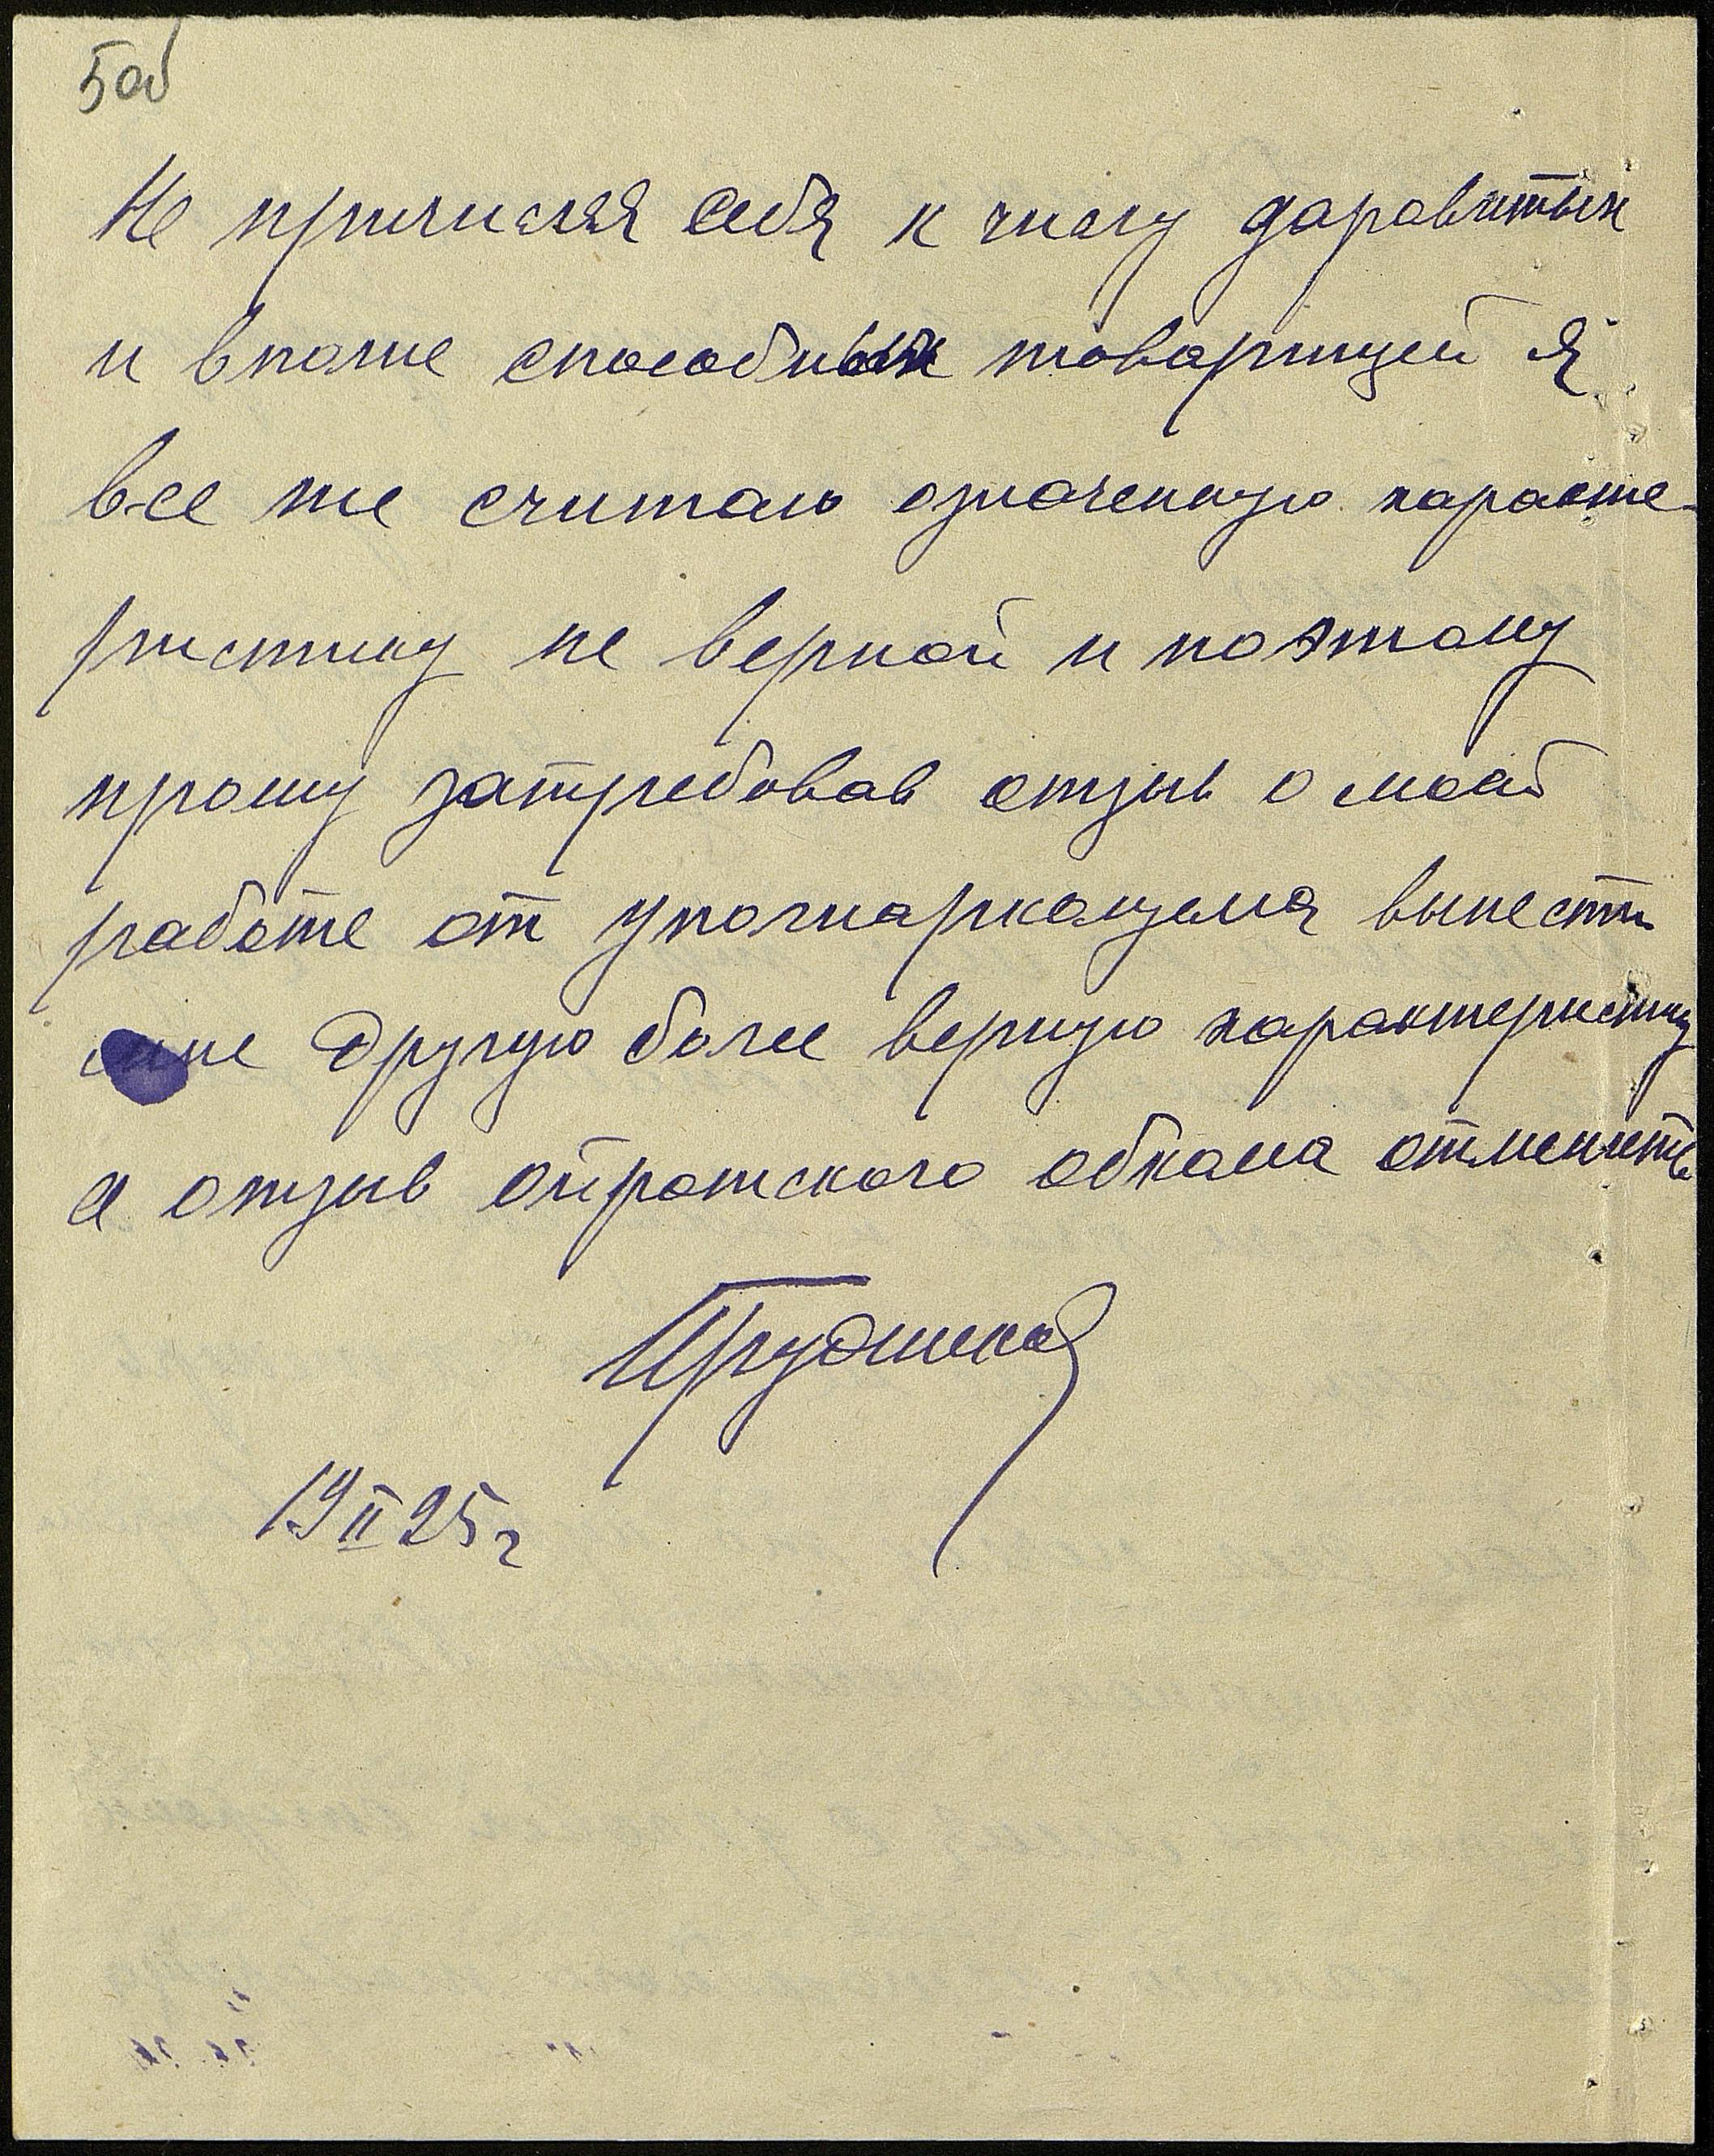 5об
Не причисляя себя к числу даровитых
и вполне способных товарищей я
все же считаю означенную характе-
ристику не верной и поэтому
прошу затребовав отзыв о моей
работе от уполнаркомзема вынести
мне другую более верную характеристику
а отзыв ойротского обкома отменить
19 II 25 г